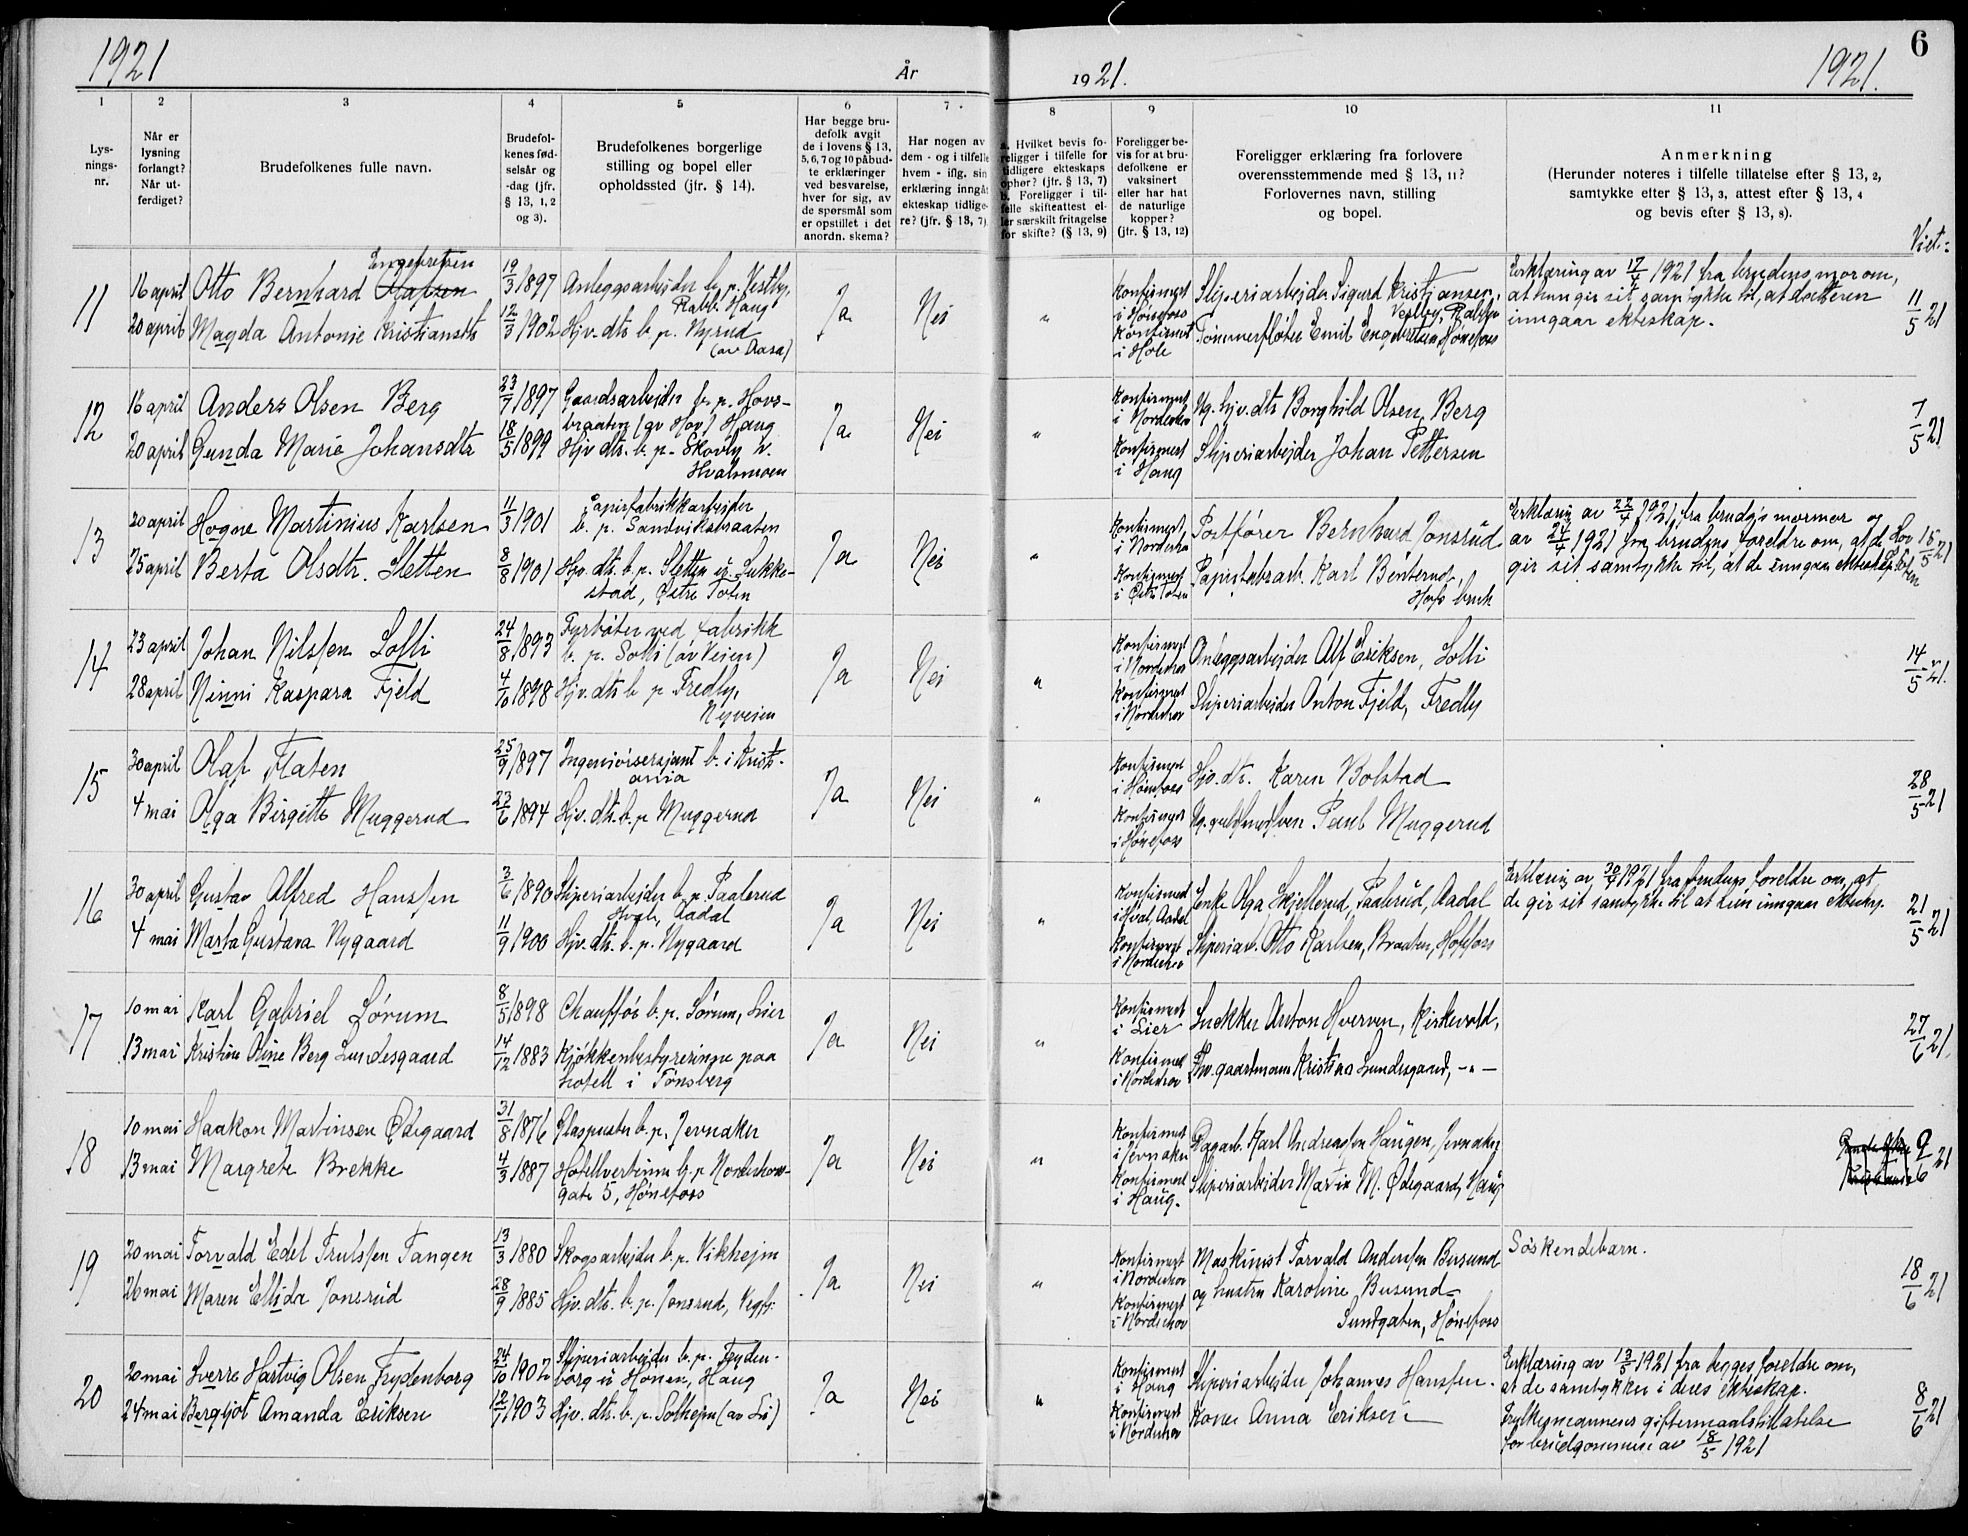 1921
År
1921.
1921.
6
1
2
3
4
5
6
7
8
9
10
11
Lys-
nings-
nr.
Når er
lysning
forlangt?
Når ut-
ferdiget?
Brudefolkenes fulle navn.
Brudefol-
kenes fød-
selsår og
-dag (jfr.
§ 13, 1, 2
og 3).
Brudefolkenes borgerlige
stilling og bopel eller
opholdssted (jfr. § 14).
Har begge bru-
defolk avgit
de i lovens § 13,
5, 6, 7 og 10 påbud-
te erklæringer
ved besvarelse,
hver for sig, av
de spørsmål som
er opstillet i det
anordn. skema?
Har nogen av
dem - og i tilfelle
hvem - iflg. sin
erklæring inngåt
ekteskap tidlige-
re? (jfr. § 13, 7)
a. Hvilket bevis fo-
religger i tilfelle for
tidligere ekteskaps
ophør? (jfr. § 13, 7)
b. Foreligger i til-
felle skifteattest el-
ler særskilt fritagelse
for skifte? (§ 13, 9)
Foreligger be-
vis for at bru-
defolkene er
vaksinert
eller har hat
de naturlige
kopper?
(jfr. § 13, 12)
Foreligger erklæring fra forlovere
overensstemmende med § 13, 11?
Forlovernes navn, stilling
og bopel.
Anmerkning
(Herunder noteres i tilfelle tillatelse efter § 13, 2,
samtykke efter § 13, 3, attest efter § 13, 4
og bevis efter § 13, 8).
Viet:
11
16 april
20 april
Engebretsen
Otto Bernhard
Magda Antonie Kristiansdtr
19/3 1897
12/3 1902
Anleggsarbeider b. p. Vestby,
Rabb. Haug
Hjv. dtr. b. p. Nyrud
(av Aasa)
Ja
Nei
"
Konfirmert
i Hønefoss
Konfirmert
i Hole
Sliperiarbejder Sigurd Kristiansen,
Vestby, Rabba
Tømmerfløter Emil Engebretsen, Hønefoss
Erklæring av 17/4 1921 fra brudens mor om,
at hun gir sit samtykke til, at datteren
inngaar ekteskap.
11/5 21
12
16 april
20 april
Anders Olsen Berg
Gunda Marie Johansdtr
23/7 1897
18/5 1899
Gaardsarbejder b. p. Hovs-
braaten (av Hov) Haug
Hjv. dtr. b. p. Skovly v.
Hvalsmoen
Ja
Nei
"
Konfirmert
i Norderhov
Konfirmert
i Haug
Ug. hjv. dtr Borghild Olsen, Berg
Sliperiarbejder Johan Pettersen
7/5 21
13
20 april
25 april
Hogne Martinius Karlsen
Berta Olsdtr. Sletten
11/3 1901
8/8 1901
Papirfabrikkarbejder
b. p. Sandviksbraaten
Hjv. dtr. b. p. Sletten u. Sukke-
stad, Østre Toten
Ja
Nei
"
Konfirmert
i Norderhov
Konfirmert
i Østre Toten
Postfører Bernhard Jonsrud
Papirfabrarb. Karl Benterud,
Hofs bruk
Erklæring av 22/4 1921 fra brudg.s mormor og
av 24/4 1921 fra brudens foreldre om, at de
gir sit samtykke til, at de inngaar ekteskap.
15/5 21
14
23 april
28 april
Johan Nilssen Solli
Ninni Kaspara Fjeld
24/8 1893
4/10 1898
Fyrbøter ved fabrikk
b. p. Solli (av Veien)
Hjv. dtr b. p. Fredly,
Nyveien
Ja
Nei
"
Konfirmert
i Norderhov
Konfirmert
i Norderhov
Anleggsarbejder Alf Eriksen, Solli
Sliperiarbejder Anton Fjeld, Fredly
14/5 21.
15
30 april
4 mai
Olaf Flaten
Olga Birgitte Muggerud
25/9 1897
23/6 1894
Ingeniørsersjant b. i Krist-
ania
Hjv. dtr. b. p. Muggerud
Ja
Nei
"
Konfirmert
i Hønefoss
Konfirmert
i Hønefoss
Hjv. dtr. Karen Bolstad
Ug. Paul Muggerud
28/5 21
16
30 april
4 mai
Gustav Alfred Hanssen
Marta Gustava Nygaard
3/6 1890
11/9 1900
Sliperiarbejder b. p. Paalerud
Hval, Aadal
Hjv. dtr. b. p. Nygaard
Ja
Nei
"
Konfirmert
i Hval Aadal
Konfirmert
i Norderhov
Enke Olga Skjellerud, Paalerud, Aadal
Sliperiarb. Otto Karlsen, Braaten, Hofsfoss
Erklæring av 30/4 1921 fra brudens foreldre om, at
de gir sit samtykke til at hun inngaar ekteskap.
21/5 21
17
10 mai
13 mai
Karl Gabriel Sørum
Kristine Oline Berg Lundesgaard
8/5 1898
14/12 1883
Chauffør b. p. Sørum, Lier
Kjøkkenbestyrerinne paa
hotell i Tønsberg
Ja
Nei
"
Konfirmert
i Lier
Konfirmert
i Norderhov
Snekker Anton Hverven, Kirkevold,
Fhv. gaardmann Kristian Lundesgaard, - " -
27/6 21.
18
10 mai
13 mai
Haakon Martinsen Ødegaard
Margrete Brekke
31/8 1876
4/3 1887
Glaspuster b. p. Jevnaker
Hotellvertinne b. p. Norderhovs-
gate 5, Hønefoss
Ja
Nei
"
Konfirmert
i Jevnaker
Konfirmert
i Haug.
Dagarb. Karl Andreassen Haugen, Jevnaker
Sliperiarbejder Martin M. Ødegaard, Haug
9/6 21
19
20 mai
26 mai
Torvald Edel Trulssen Tangen
Maren Ellida Jonsrud
13/3 1880
28/9 1885
Skogsarbejder b. p. Vikhejm
Hjv. dtr. b. p. Jonsrud, Vegf:
Ja
Nei
"
Konfirmert
i Norderhov
Konfirmert
i Norderhov
Maskinist Torvald Anderssen Busund
og hustru Karoline Busund
Sundgaten, Hønefoss
Søskendebarn.
18/6 21
20
20 mai
24 mai
Sverre Hartvig Olsen Frydenborg
Bergljot Amanda Eriksen
24/10 1902
12/1 1903
Sliperiarbejder b. p. Fryden-
borg u Hønen, Haug
Hjv. dtr. b. p. Solhejm (av Li)
Ja
Nei
"
Konfirmert
i Haug
Konfirmert
i Norderhov
Sliperiarbejder Johannes Hanssen.
Kone Anna Eriksen
Erklæring av 13/5 1921 fra begges foreldre om,
at de samtykker i deres ekteskap.
Fylkesmannens giftermaalstillatelse
for brudgommen av 18/5 1921
8/6 21